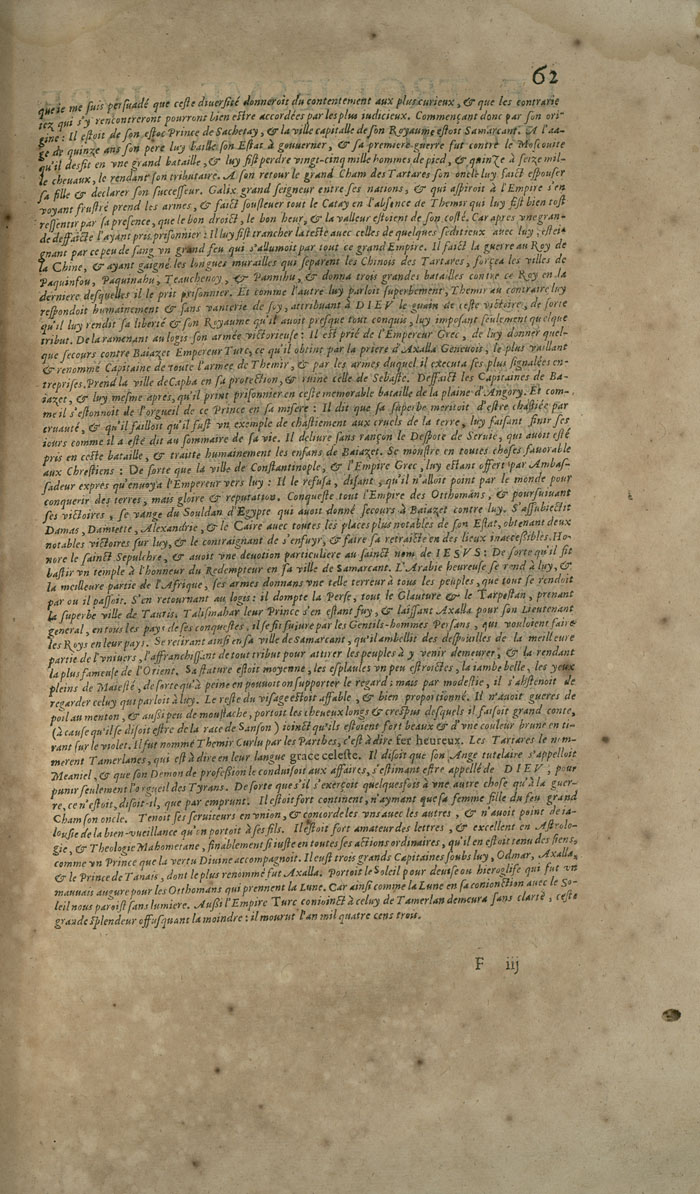 62
que ie me suis persuadé que ceste diuersité donneroit du contentement aux plus curieux, & que les contrarie
tez qui s'y rencontreront pourront bien estre accordées par les plus iudicieux. Commençant donc par son ori-
gine: Il estoit de son estoc Prince de Sachetay, & la ville capitalle de son Royaume estoit Samarcant. A l'aa-
ge de quinze ans son pere luy baille son Estat à gouuerner, & sa premiere guerre fut contre le Moscouite
qu'il desfit en vne grand bataille, & luy fist perdre vingt-cinq mille hommes de pied, & quinze à seize mil-
le cheuaux, le rendant son tributaire. A son retour le grand Cham des Tartares son oncle luy faict espouser
sa fille & declarer son successeur. Galix grand seigneur entre ses nations, & qui aspiroit à l'Empire s'en
voyant frustré prend les armes, & faict sousleuer tout le Catay en l'absence de Themir qui luy fist bien tost
ressentir par sa presence, que le bon droict, le bon heur, & la valleur estoient de son costé. Car apres vne gran-
de deffaicte l'ayant pris prisonnier: Il luy fist trancher la teste auec celles de quelques seditieux auec luy, estei-
gnant par ce peu de sang vn grand feu qui s'allumoit par tout ce grand Empire. Il faict la guerre au Roy de
la Chine, & ayant gaigné les longues murailles qui separent les Chinois des Tartares, força les villes de
Paquinfou, Paquinahu, Teauchenoy, & Pannihu, & donna trois grandes batailles contre ce Roy en la
derniere desquelles il le prit prisonnier. Et comme l'autre luy parloit superbement, Themir au contraire luy
respondoit humainement & sans vanterie de soy, attribuant à DIEV le guain de ceste victoire, de sorte
qu'il luy rendit sa liberté & son Royaume qu'il auoit presque tout conquis, luy imposant seulement quelque
tribut. De la ramenant au logis son armée victorieuse: Il est prié de l'Empereur Grec, de luy donner quel-
que secours contre Baiazet Empereur Turc, ce qu'il obtint par la priere d'Axalla Geneuois, le plus vaillant
& renommé Capitaine de toute l'armee de Themir, & par les armes duquel il executa ses plus signalées en-
treprises. Prend la ville de Capha en sa protection, & ruine celle de Sebaste. Deffaict les Capitaines de Ba-
iazet, & luy mesme apres, qu'il print prisonnier en ceste memorable bataille de la plaine d'Angory. Et com-
me il s'estonnoit de l'orgueil de ce Prince en sa misere: Il dit que sa superbe meritoit d'estre chastiée par
cruauté, & qu'il falloit qu'il fust vn exemple de chastiement aux cruels de la terre, luy faisant finir ses
iours comme il a esté dit au sommaire de sa vie. Il deliure sans rançon le Despote de Seruie, qui auoit esté
pris en ceste bataille, & traite humainement les enfans de Baiazet. Se monstre en toutes choses fauorable
aux Chrestiens: De sorte que la ville de Constantinople, & l'Empire Grec, luy estant offert par Ambas-
sadeur expres qu'enuoya l'Empereur vers luy: Il le refusa, disant, qu'il n'alloit point par le monde pour
conquerir des terres, mais gloire & reputation. Conqueste tout l'Empire des Otthomans, & poursuiuant
ses victoires, se vange du Souldan d'Egypte qui auoit donné secours à Baiazet contre luy. S'assubiectit
Damas, Damiette, Alexandrie, & le Caire auec toutes les places plus notables de son Estat, obtenant deux
notables victoires sur luy, & le contraignant de s'enfuyr, & faire sa retraicte en des lieux inaccessibles. Ho-
nore le sainct Sepulchre, & auoit vne deuotion particuliere au sainct nom de IESVS: De sorte qu'il fit
bastir vn temple à l'honneur du Redempteur en sa ville de Samarcant. L'Arabie heureuse se rend à luy, &
la meilleure partie de l'Afrique, ses armes donnans vne telle terreur à tous les peuples, que tout se rendoit
par ou il passoit. S'en retournant au logis: il dompte la Perse, tout le Glauture & le Tarpestan, prenant
la superbe ville de Tauris. Talismahar leur Prince s'en estant fuy, & laissant Axalla pour son Lieutenant
general, en tous les pays de ses conquestes, il se fit suiure par les Gentils-hommes Persans, qui vouloient faire
les Roys en leur pays. Se retirant ainsi en sa ville de Samarcant, qu'il ambellit des despouilles de la meilleure
partie de l'vniuers, l'affranchissant de tout tribut pour attirer les peuples à y venir demeurer, & la rendant
la plus fameuse de l'Orient. Sa stature estoit moyenne, les espaules vn peu estroictes, la iambe belle, les yeux
pleins de Maiesté, de sorte qu'à peine en pouuoit on supporter le regard: mais par modestie, il s'abstenoit de
regarder celuy qui parloit à luy. Le reste du visage estoit affable, & bien proportionné. Il n'auoit gueres de
poil au menton, & aussi peu de moustache, portoit les cheueux longs & crespus desquels il faisoit grand conte,
(à cause qu'il se disoit estre de la race de Sanson) ioinct qu'ils estoient fort beaux & d'vne couleur brune en ti-
rant sur le violet. Il fut nommé Themir Curlu par les Parthes, c'est à dire fer heureux. Les Tartares le nom-
merent Tamerlanes, qui est à dire en leur langue grace celeste. Il disoit que son Ange tutelaire s'appelloit
Meaniel, & que son Demon de profession le conduisoit aux affaires, s'estimant estre appellé de DIEV, pour
punir seulement l'orgueil des Tyrans. De sorte que s'il s'exerçoit quelquesfois à vne autre chose qu'à la guer-
re, ce n'estoit, disoit-il, que par emprunt. Il estoit fort continent, n'aymant que sa femme fille du feu grand
Cham son oncle. Tenoit ses seruiteurs en vnion, & concorde les vns auec les autres, & n'auoit point de ia-
lousie de la bien-vueillance qu'on portoit à ses fils. Il estoit fort amateur des lettres, & excellent en Astrolo-
gie, & Theologie Mahometane, finablement si iuste en toutes ses actions ordinaires, qu'il en estoit tenu des siens,
comme vn Prince que la vertu Diuine accompagnoit. Il eust trois grands Capitaines soubs luy, Odmar, Axalla,
& le Prince de Tanais, dont le plus renommé fut Axalla. Portoit le Soleil pour deuise ou hieroglife qui fut vn
mauuais augure pour les Otthomans qui prennent la Lune. Car ainsi comme la Lune en sa conionction auec le So-
leil nous paroist sans lumiere. Aussi l'Empire Turc conioinct à celuy de Tamerlan demeura sans clarté, ceste
grande splendeur offusquant la moindre: il mourut l'an mil quatre cens trois.
F iij